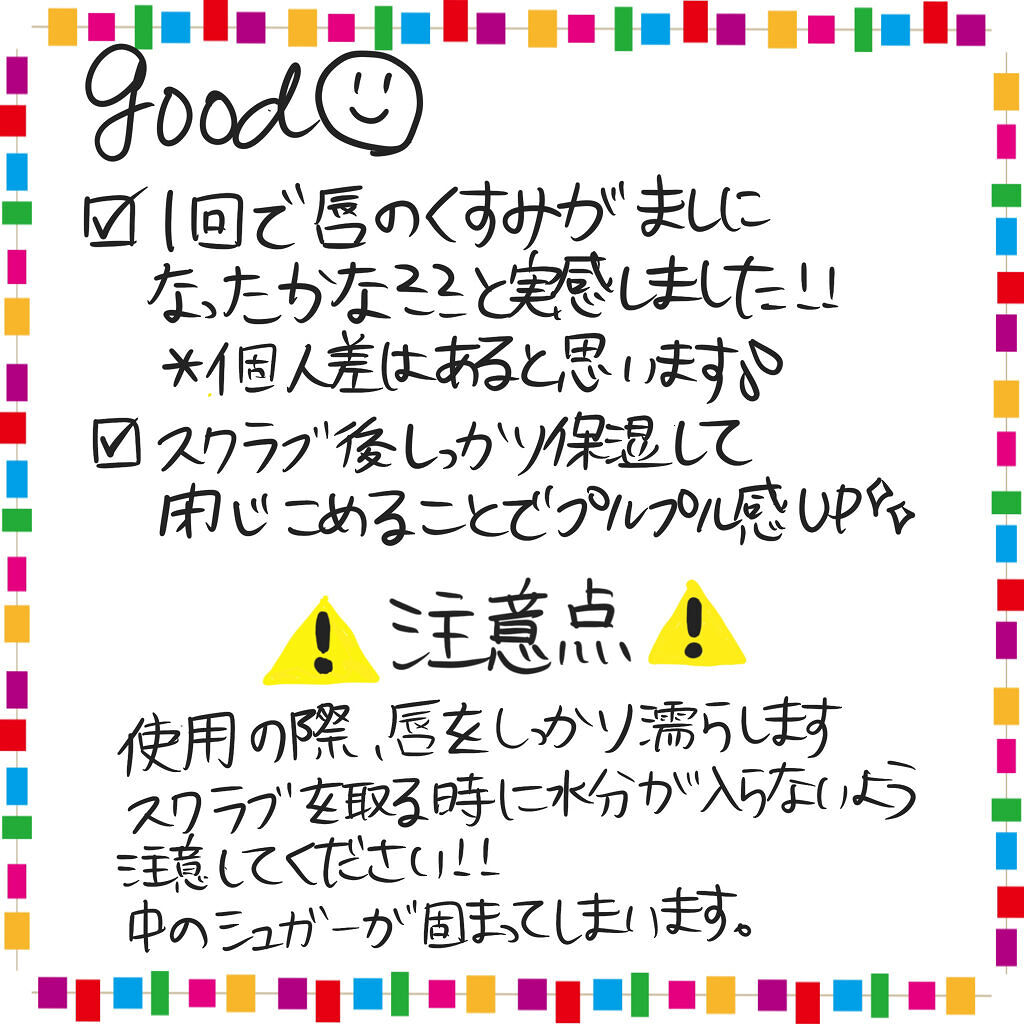 good
☑1回で唇のくすみがましに
なったかな??と実感しました!!
*個人差はあると思います♪
☑スクラブ後しっかり保湿して
閉じこめることでプルプル感UP
注意点
使用の際、唇をしっかり濡らします
スクラブを取る時に水分が入らないよう
注意してください!!
中のシュガーが固まってしまいます。